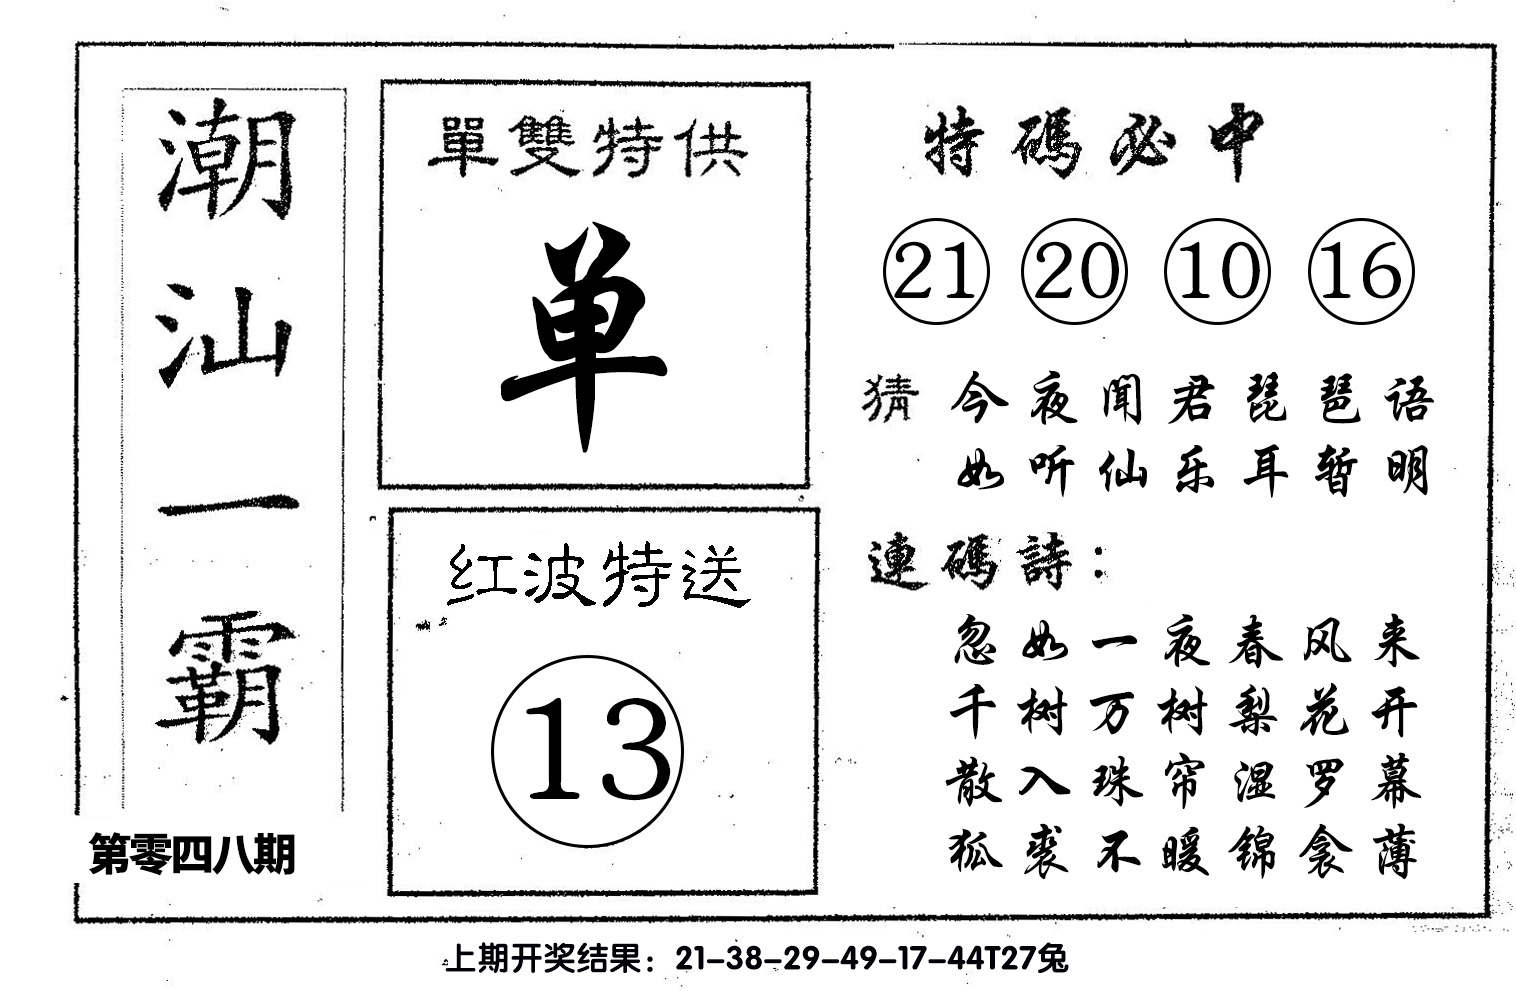 潮汕一霸
第零四八期
單雙特供
单
红波特送
13
特碼必中
21 20 10 16
猜 今夜闻君琵琶语
如听仙乐耳暂明
連碼詩：
忽如一夜春风来
千树万树梨花开
散入珠帘湿罗幕
狐裘不暖锦衾薄
上期开奖结果：21-38-29-49-17-44T27兔